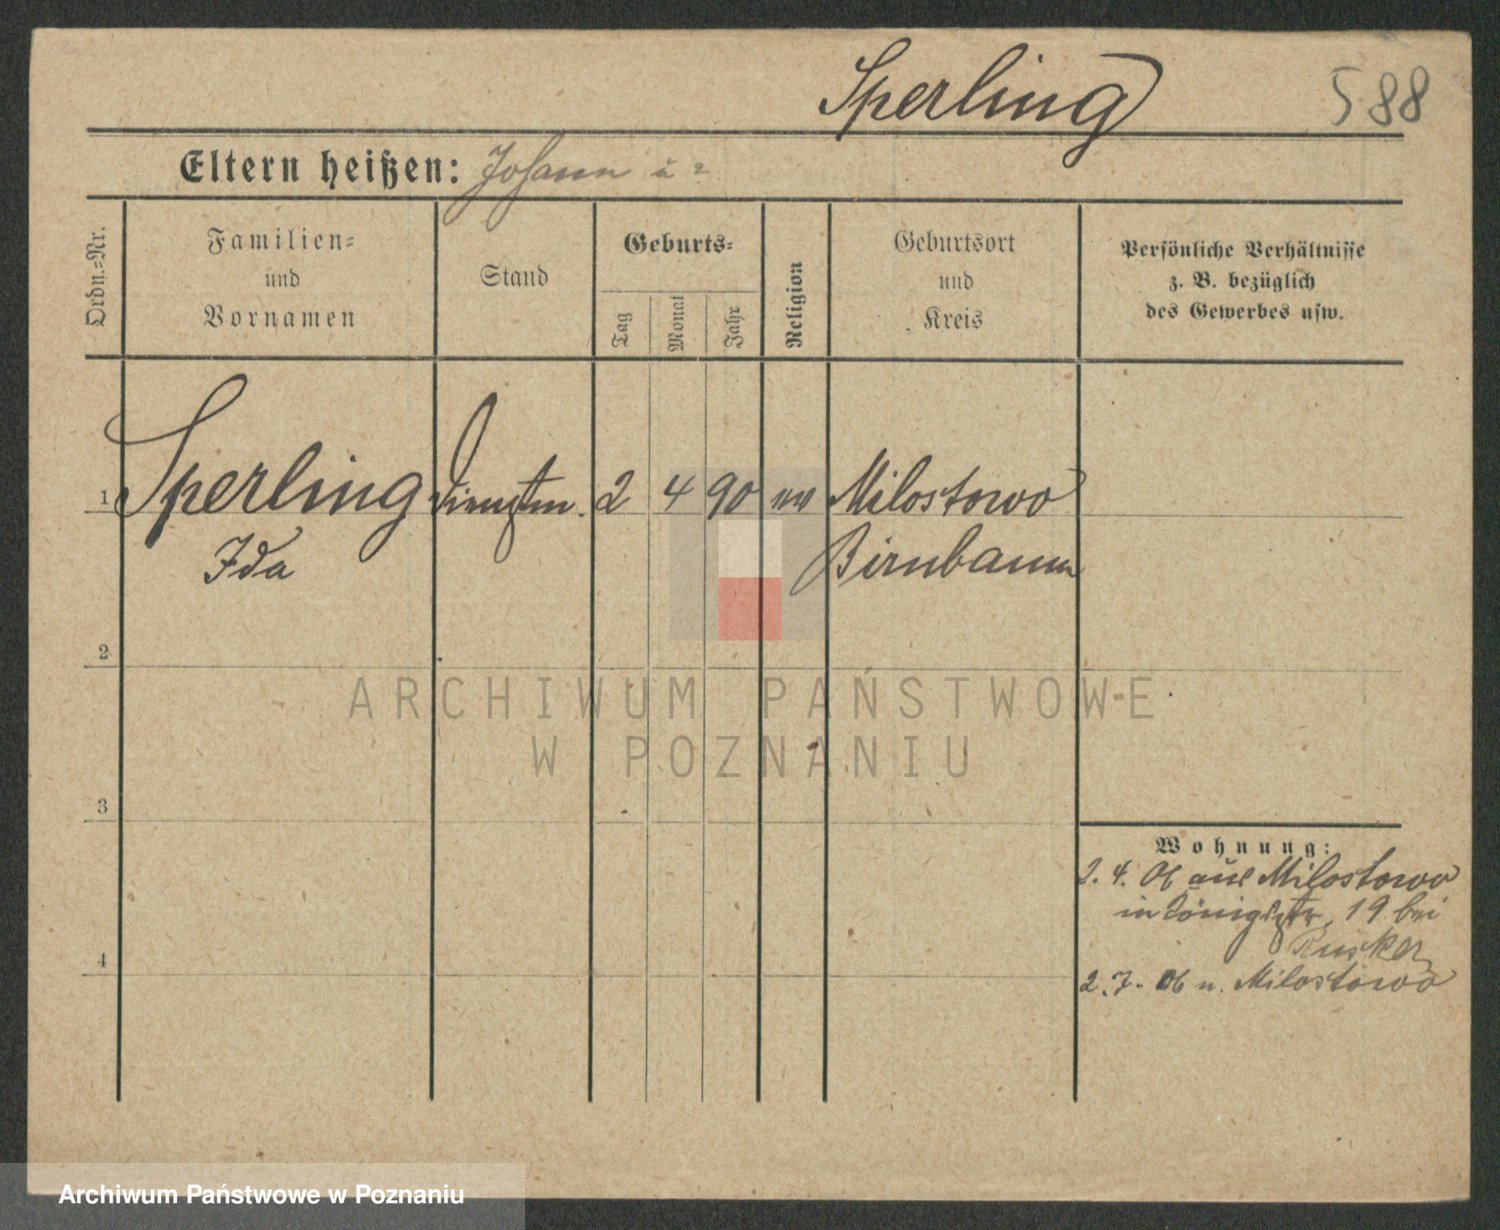 Sperling
588
Eltern heißen: Johann u ?
Ordn.-Nr.
Familien-
und
Vornamen
Stand
Geburts-
Tag
Monat
Jahr
Religion
Geburtsort
und
Kreis
Persönliche Verhältnisse
z. B. bezüglich
des Gewerbes usw.
1 Sperling Dienstm. 2 4 90 ev Milostowo
Ida Birnbaum
2
3
4
Wohnung:
2. 4. 06 aus Milostowo
in Königstr. 19 bei
2. 7. 06 n. Milostowo
ARCHIWUM PAŃSTWOWE
W POZNANIU
Archiwum Państwowe w Poznaniu